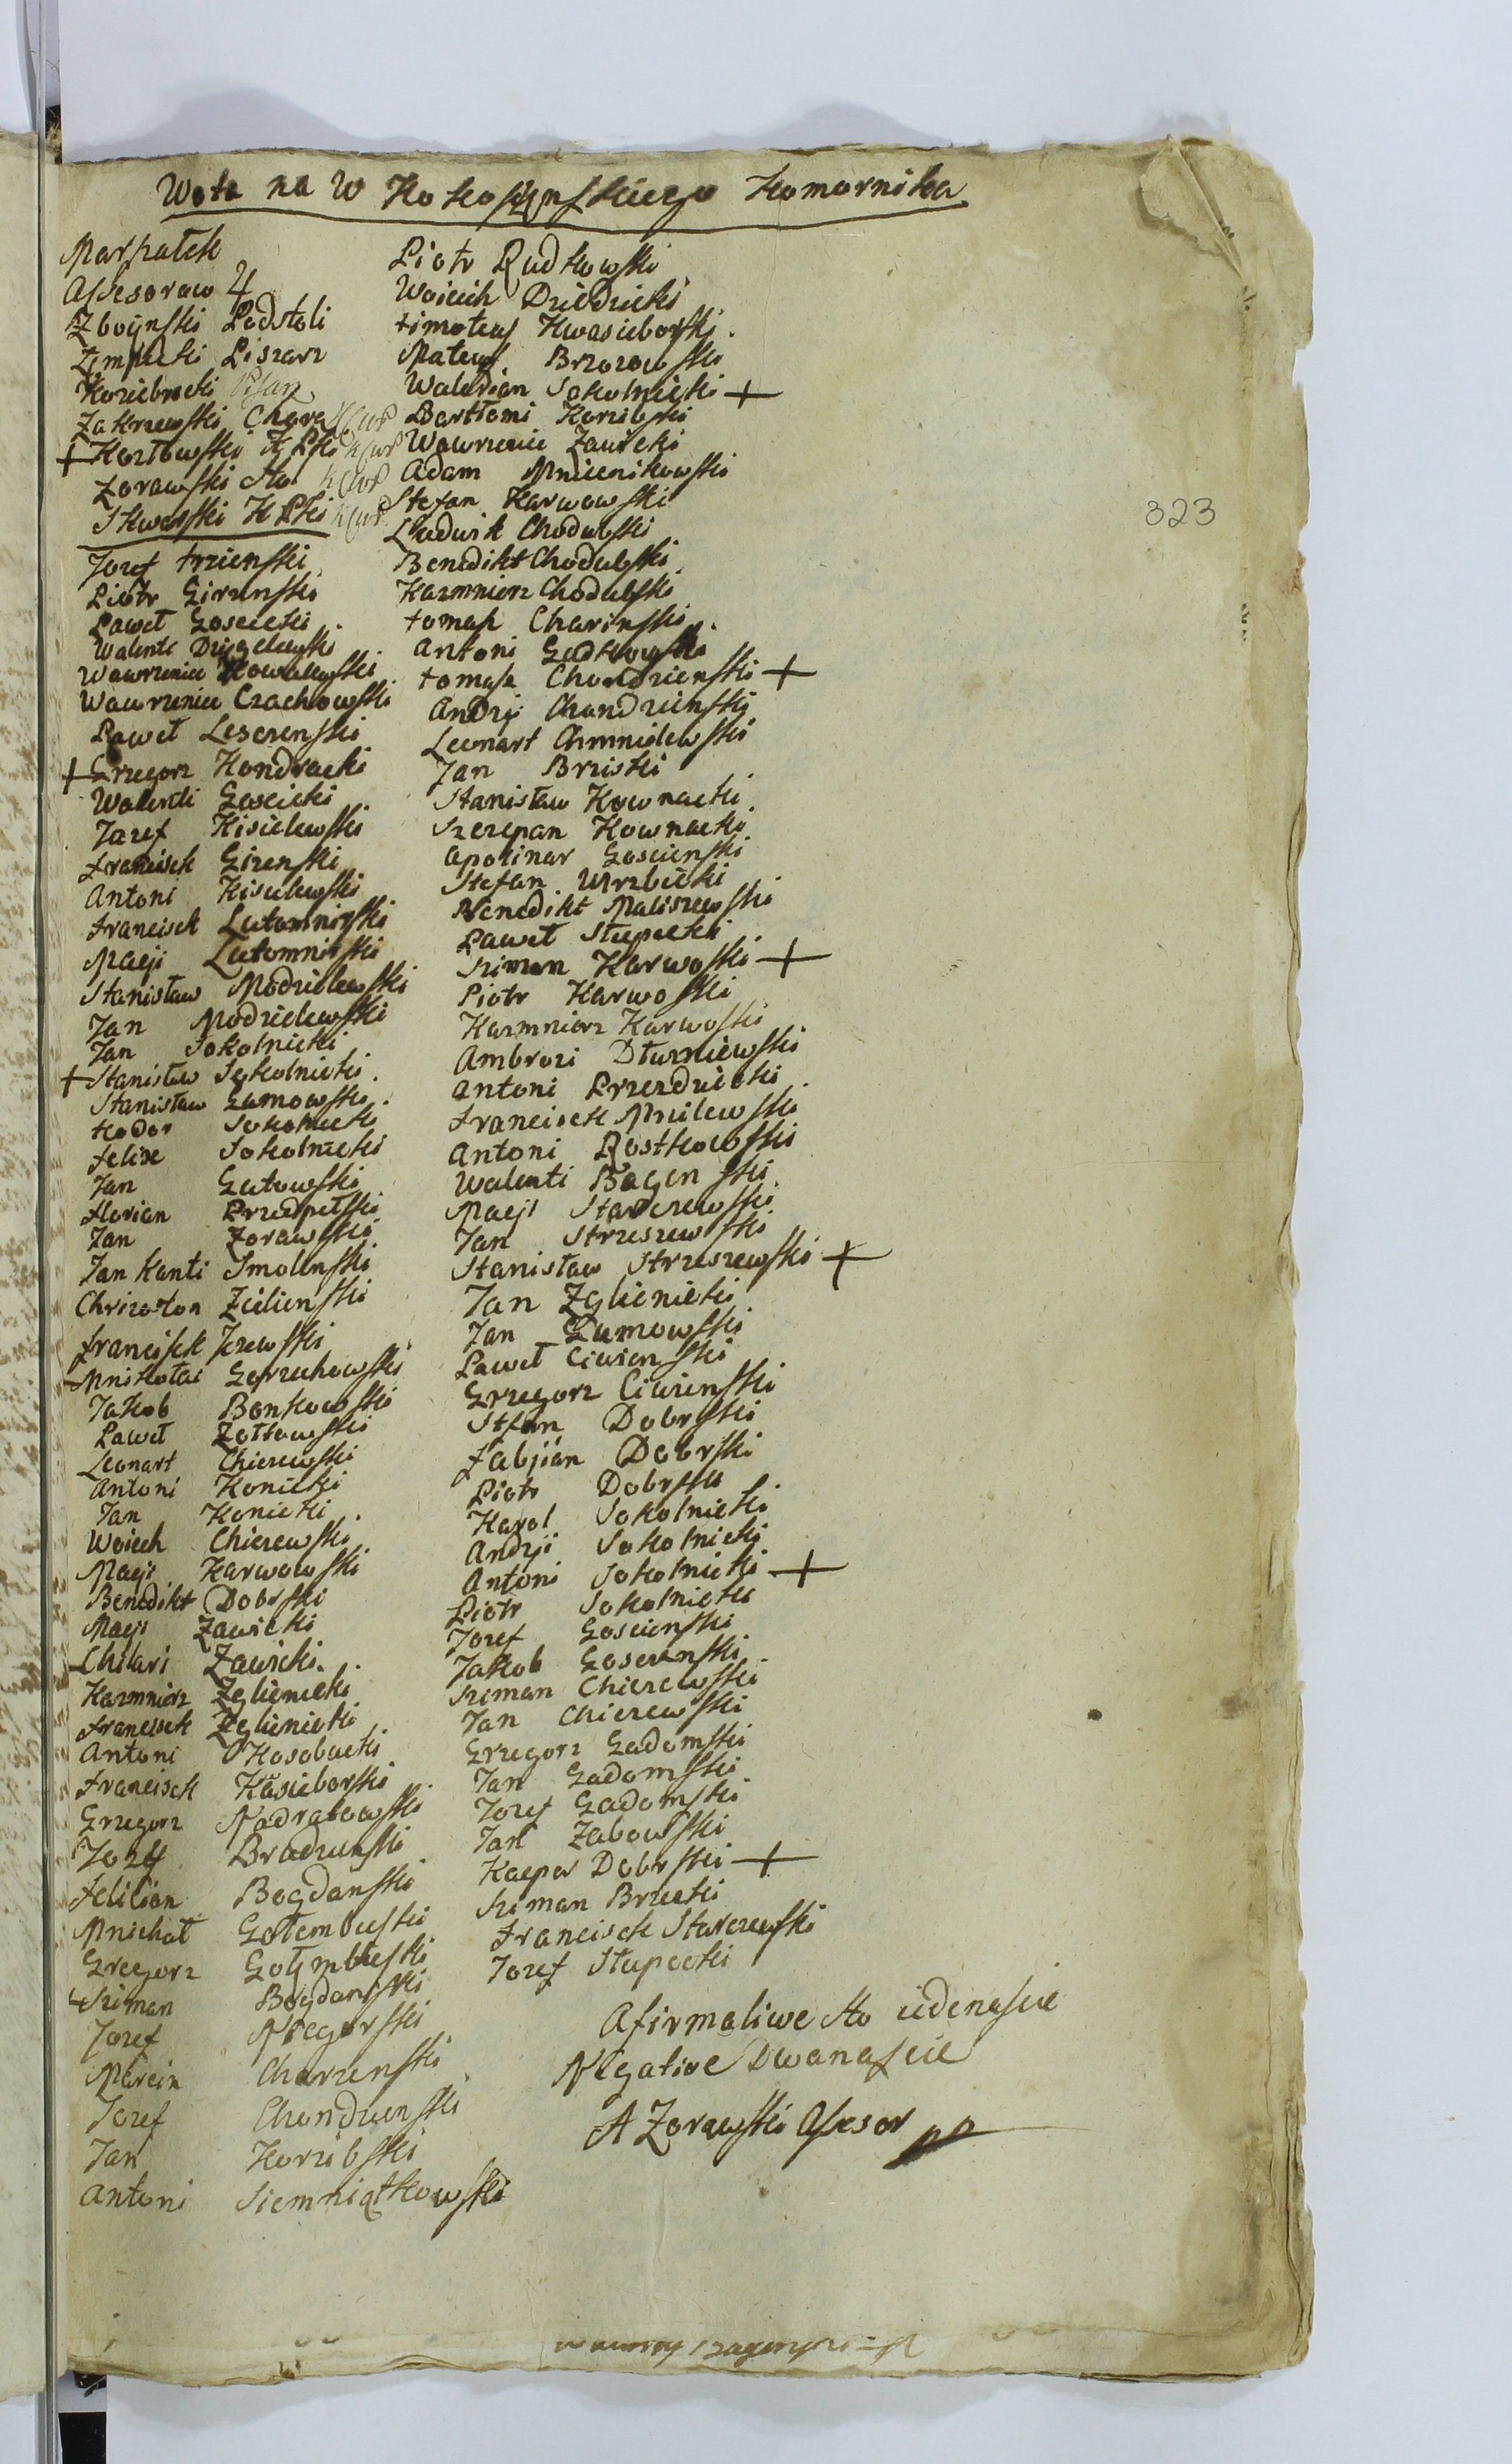 Wota na W Kokoszynskiego Komornika
Marszałek
Assesorow 4
Zboynski Podstoli
Zempleski Pisarz
Koziebrocki
Zakrzewski Chora
+ Kozłowski
Zorawski
Skwarski
Jozef trzienski
Piotr Girznski
Paweł Goscicki
Walenti Dzięgelewski
Wawrzeniec Nowolewski
Wawrzeniec Czachowski
Paweł Leserenski
+ Grzegorz Kondracki
Walenti Goscicki
Jozef Kisielewski
Franciszek Girenski
Antoni Kisielewski
Franciszek Lutomnirski
Maeji Lutomnirski
Stanisław Modzielewski
Jan Modzielewski
Jan Sokolnicki
+ Stanisław Sokolnicki
Stanisław Gumowski
teodor Sokolnicki
Felixe Sokolnicki
Jan Gutowski
Florian Przedpełski
Jan Zorawski
Jan Kanti Smolenski
Chrizoston Zielienski
Franciszek Jezewski
Mnikołai Goprzechowski
Jakob Bonkowski
Paweł Zołtowski
Leonart Chierewski
Antoni Konicki
Jan Konicki
Woiech Chierewski
Maeji Karwowski
Benedikt Dobrski
Maeji Zawicki
Chilari Zawicki
Kazmnierz Zglienicki
Franciszek Zglienicki
Antoni Kosobucki
Franciszek Kasieborski
Grzegorz Nadratowski
Jozef Bradzinski
Felilian Bogdanski
Mnichał Gołembieski
Grzegorz Gołymbieski
Sziman Bogdanski
Jozef Niegorski
Marcin Charzenski
Jozef Chondzienski
Jan Korzibski
Antoni Siemniątkowski
Piotr Rudkowski
Woiciech Dziedzicki
timoteus Kwasieborski
Mateus Brzozowski
Walerian Sokolnicki +
Bartłomi Korzibski
Wawrzeniec Zawicki
Adam Mniecnikowski
Stefan Karwowski
Ludwik Chodubski
Benedikt Chodubski
Kazmnierz Chodubski
tomasz Charinski
Antoni Godlewski
tomasz Chondzienski +
Andrzi Chondzienski
Leonart Chmnielewski
Jan Brziski
Stanisław Kownacki
Szczepan Kownacki
Apolinar Goscienski
Stefan Wrzbicki
Benedikt Maliszewski
Paweł Słupecki
Sziman Karwoski +
Piotr Karwoski
Kazmnierz Karwoski
Ambrozi Dłurniewski
Antoni Przezdziecki
Franciszek Mnilewski
Antoni Rostkowski
Walenti Bagenski
Maeji Starczewski
Jan Strzeszewski
Stanisław Strzeszewski +
Jan Zglienicki
Jan Gumowski
Paweł Ciwienski
Grzegorz Ciwienski
Stefan Dobrski
Fabjian Dobrski
Piotr Dobrski
Karol Sokolnicki
Andrzi Sokolnicki
Antoni Sokolnicki +
Piotr Sokolnicki
Jozef Goscienski
Jakob Goscienski
Sziman Chierewski
Jan Chierewski
Grzegorz Gadomski
Jan Gadomski
Jozef Gadomski
Jan Zabowski
Kacper Dobrski +
Sziman Brzeski
Franciszek Starczewski
Jozef Słupecki
Afirmatiwe sto iedenascie
Negative Dwanascie
A Zorawski Asesor
323